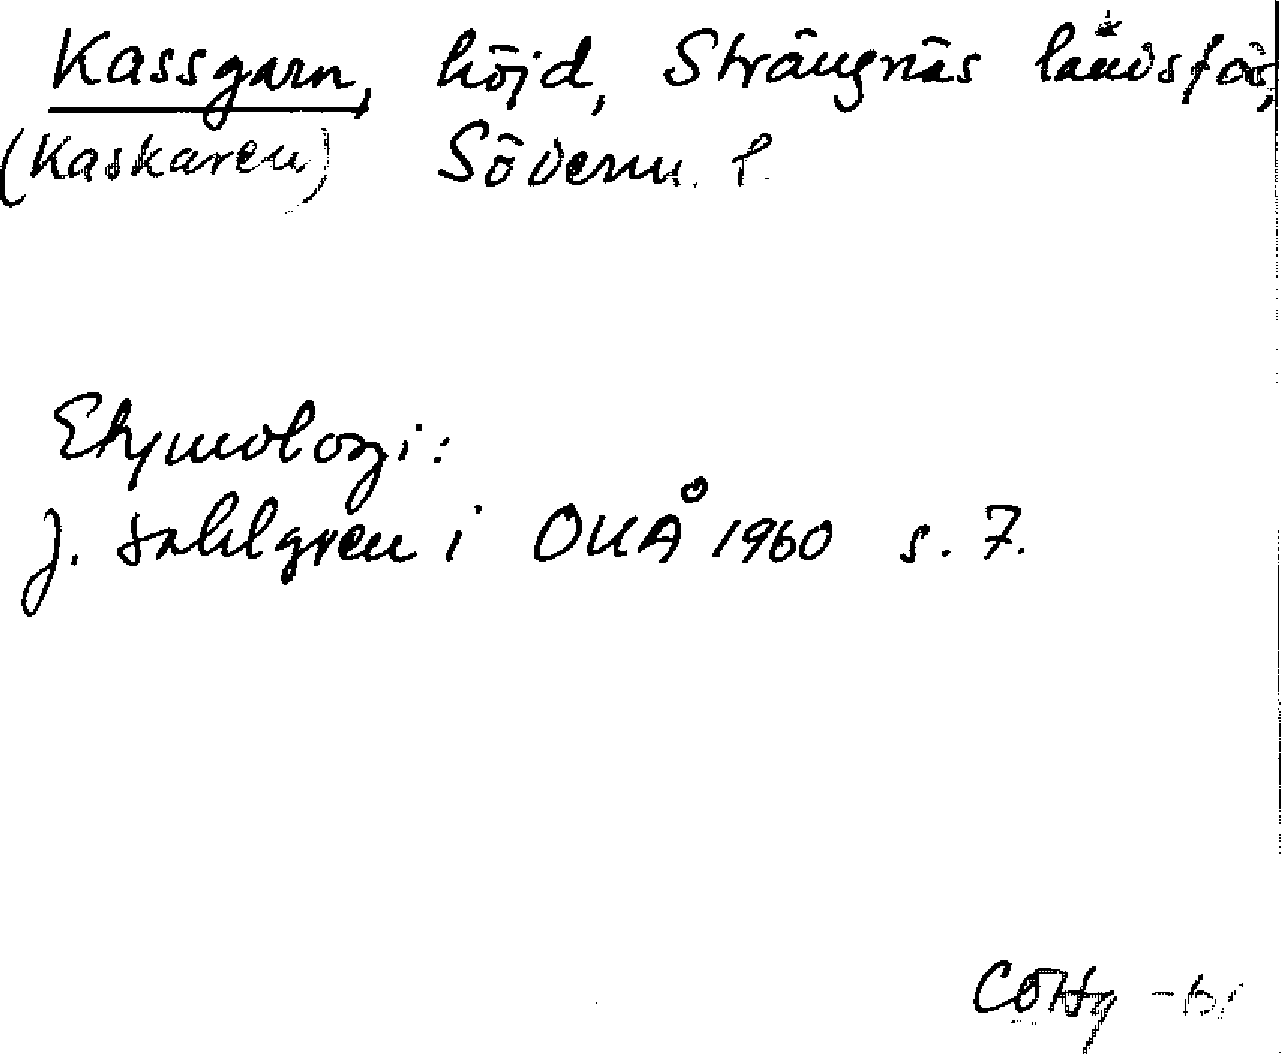 Kassgarn, höjd, Strängnäs landsfö,
(Kaskaren) Söderm. l.
Etymologi:
J. Sahlgren i OUÅ 1960 s. 7.